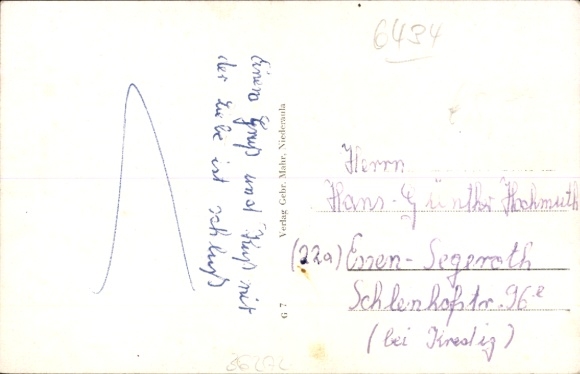 6434
Einen Gruß und Kuß mit
der Liebe ist Schluß
Verlag Gebr. Mahr, Niederaula
G 7
Herrn
Hans-Günther Hochmuth
(22a) Essen-Segeroth
Schlenhofstr. 96e
(bei Kredig)